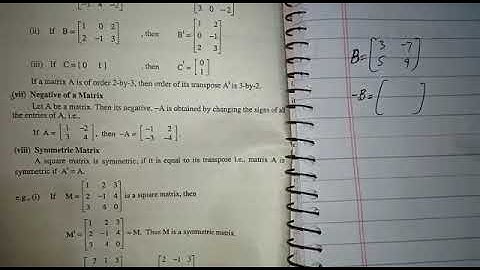 3 0 -2
(ii) If B = [1 0 2
2 -1 3] , then B^t = [1 2
0 -1
2 3]
(iii) If C = [0 1] , then C^t = [0
1]
If a matrix A is of order 2-by-3, then order of its transpose A^t is 3-by-2.
(vii) Negative of a Matrix
Let A be a matrix. Then its negative, -A is obtained by changing the signs of all
the entries of A, i.e.,
If A = [1 -2
3 4] , then -A = [-1 2
-3 -4] .
(viii) Symmetric Matrix
A square matrix is symmetric, if it is equal to its transpose i.e., matrix A is
symmetric if A^t = A.
e.g., (i) If M = [1 2 3
2 -1 4
3 4 0] is a square matrix, then
M^t = [1 2 3
2 -1 4
3 4 0] = M. Thus M is a symmetric matrix
2 1 3
2 -1 3
B = [3 -7
5 9]
-B = [ ]